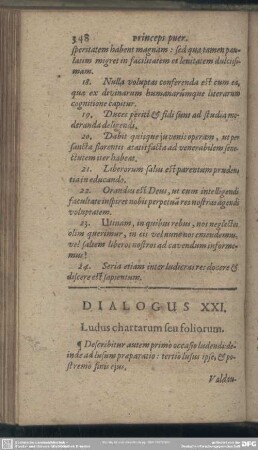 348 princeps puer.
speritatem habent magnam: sed qua tamen pau-
latim migret in facilitatem et lenitatem dulcissi-
mam.
18. Nulla voluptas conferenda est cum ea,
quæ ex divinarum humanarúmque literarum
cognitione capitur.
19. Duces periti & fidi sint ad studia mo-
deranda deligendi.
20. Dabit quisque juveni operam, ut per
sancta florentis ætatis facta ad venerabilem senec-
tutem iter habeat.
21. Liberorum salus est parentum pruden-
tia in educando.
22. Orandus est Deus, ut cum intelligendi
facultate inspiret nobis perpetuò res nostras agendi
voluptatem.
23. Utinam, in quibus rebus, nos neglectos
olim querimur, in eis vel nunc nos emendemus,
vel saltem liberos nostros ad cavendum informe-
mus!
24. Seria etiam inter ludicras res docere &
discere est sapientum.
DIALOGUS XXI.
Ludus chartarum seu foliorum.
¶ Describitur autem primò occasio ludendi: de-
inde ad lusum præparatio: tertiò lusus ipse, & po-
stremò finis ejus.
Valdau-